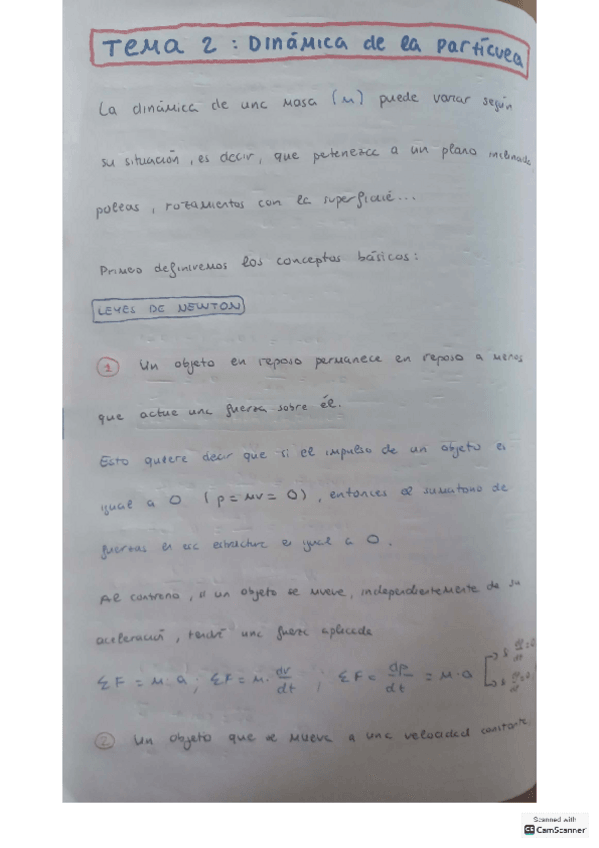 TEMA 2 : DINÁMICA DE LA PARTÍCULA
La dinámica de una masa (m) puede variar según
su situación, es decir, que petenezca a un plano inclinado,
poleas, rozamientos con la superficie...
Primero definiremos los conceptos básicos:
LEYES DE NEWTON
1 Un objeto en reposo permanece en reposo a menos
que actue una fuerza sobre él.
Esto quiere decir que si el impulso de un objeto es
igual a 0 (p=mv=0), entonces el sumatorio de
fuerzas en esa estructura es igual a 0.
Al contrario, si un objeto se mueve, independientemente de su
aceleración, tendrá una fuerza aplicada
ΣF = m·a; ΣF = m·dv/dt ; ΣF = dp/dt = m·a
2 Un objeto que se mueva a una velocidad constante,
Scanned with
CS CamScanner